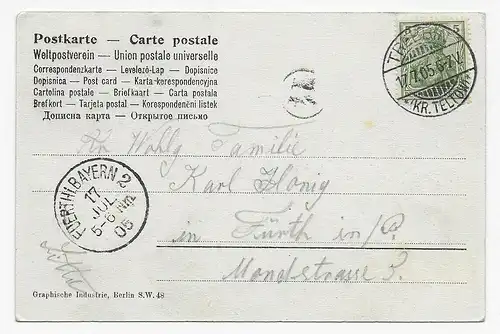 Postkarte — Carte postale
Weltpostverein — Union postale universelle
Correspondenzkarte — Levelező-Lap — Dopisnice
Dopisnica — Post card — Karta-korespondencyjna
Cartolina postale — Briefkaart — Carta postala
Brefkort — Tarjeta postal — Korespondenční listek
Дописна карта — Открытое письмо
5
17.7.05.6-7V.
(KR. TELTOW)
Wohlg. Familie
Karl Honig
in Fürth in/
Mondstrasse 3.
FUERTH I. BAYERN 2
17
JUL
5-6 Nm
05
Graphische Industrie, Berlin S.W. 48